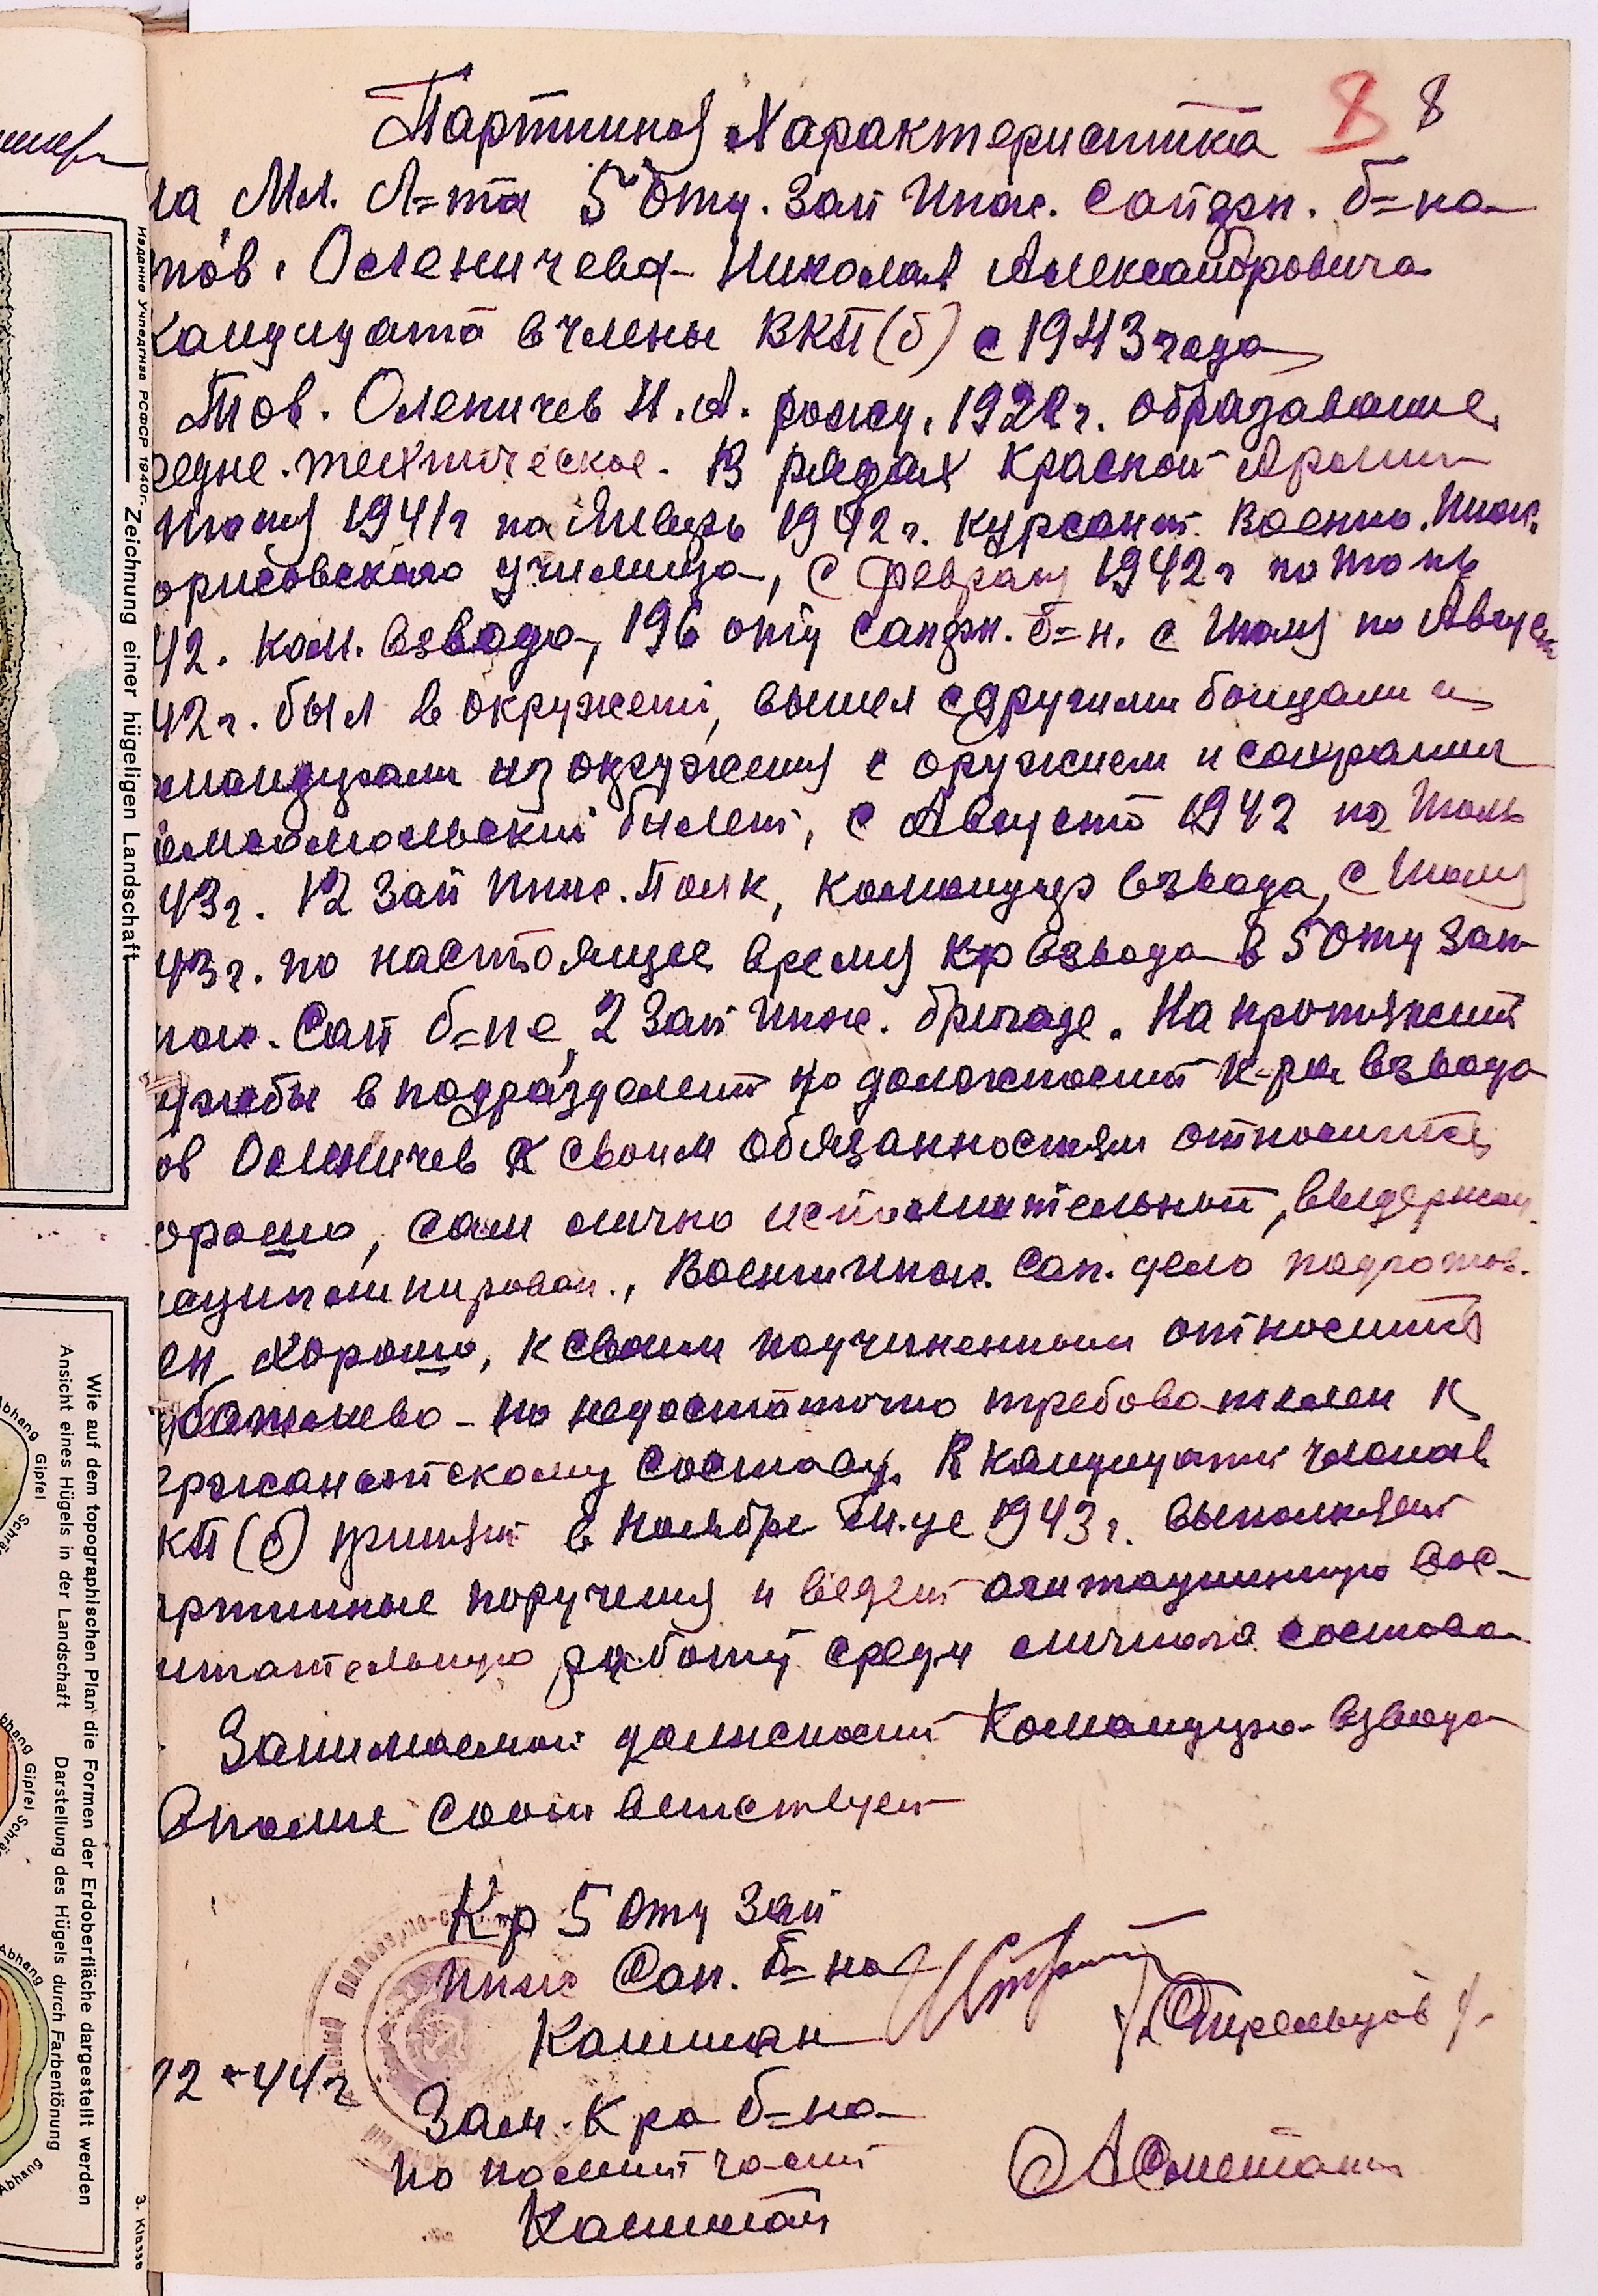 8 8
Партииная Характеристика
на Мл. Л=та 5 Отд. Зап Инж. Сапёрн. б=на
тов. Оленичева Николая Александровича
кандидата в члены ВКП(б) с 1943 года
Тов. Оленичев Н.А. рожд. 192 г. образавание
редне. техническое. В рядах Красной Армии
Июня 1941г по Январь 1942г. курсант. Военно. Инж.
орисовского училища, с февраля 1942г по Июнь
42. ком. взвода, 196 отд сапёрн. б=н. с Июля по Август
42г. был в окружени, вышел сдругими боицами и
мандирами из окружения с оружием и сохранил
омсомольский билет, с Августа 1942 по Июль
43г. 12 Зап Инж. Полк, командир взвода, с Июля
43г. по настоящее время кр взвода в 5 Отд Зап
нж. Сап б=не, 2 Зап Инж. бригаде. На протяжении
ужбы в подразделении по должности К-ра взвода
ов Оленичев к своим обязанностям относится
орошо, сам лично исполнительный, выдержан.
исциплинирован., Военно Инж. Сап. дело подготов.
ен хорошо, к своим подчиненным относится
но недостаточно требователен к
ержантскому составу. В кандидаты членов
КП(б) принят в Ноябре м-це 1943г. выполняет
артииные поручения и ведет агитационную вос-
итательную работу среди личного состава
Занимаемой должности Командира взвода
Вполне соответствует
Кр 5 Отд Зап
Инж Сап. б=на
Капитан
/Стрельцов/
2-44г
Зам. К ра б=на
по полит части
Капитан
Изданио Учпедгиза РСФСР 1940г.
Zeichnung einer hügeligen Landschaft
Wie auf dem topographischen Plan die Formen der Erdoberfläche dargestellt werden
Ansicht eines Hügels in der Landschaft
Darstellung des Hügels durch Farbentönung
3. Klasse
Abhang
Gipfel
Abhang
Gipfel
Abhang
Abhang